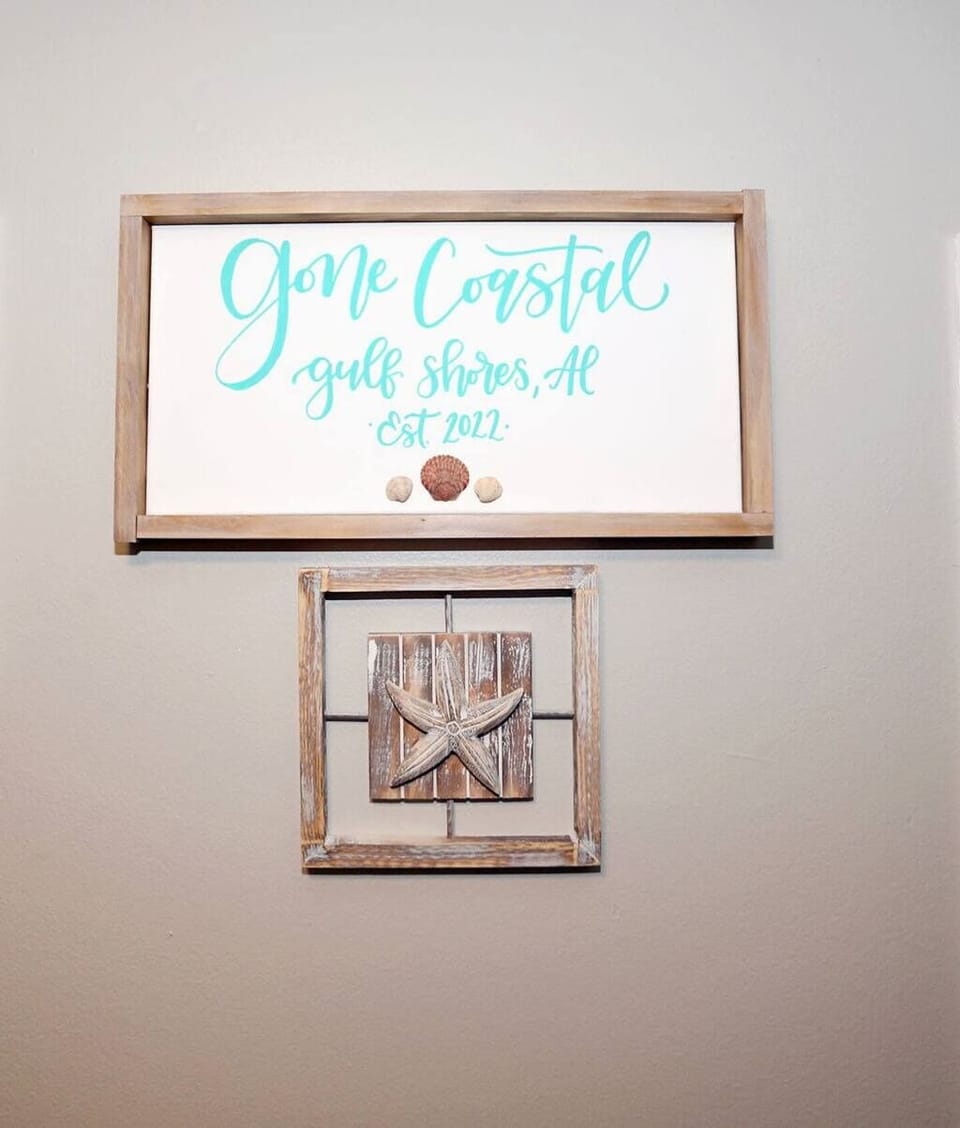 Gone Coastal
gulf shores, Al
·Est. 2022·